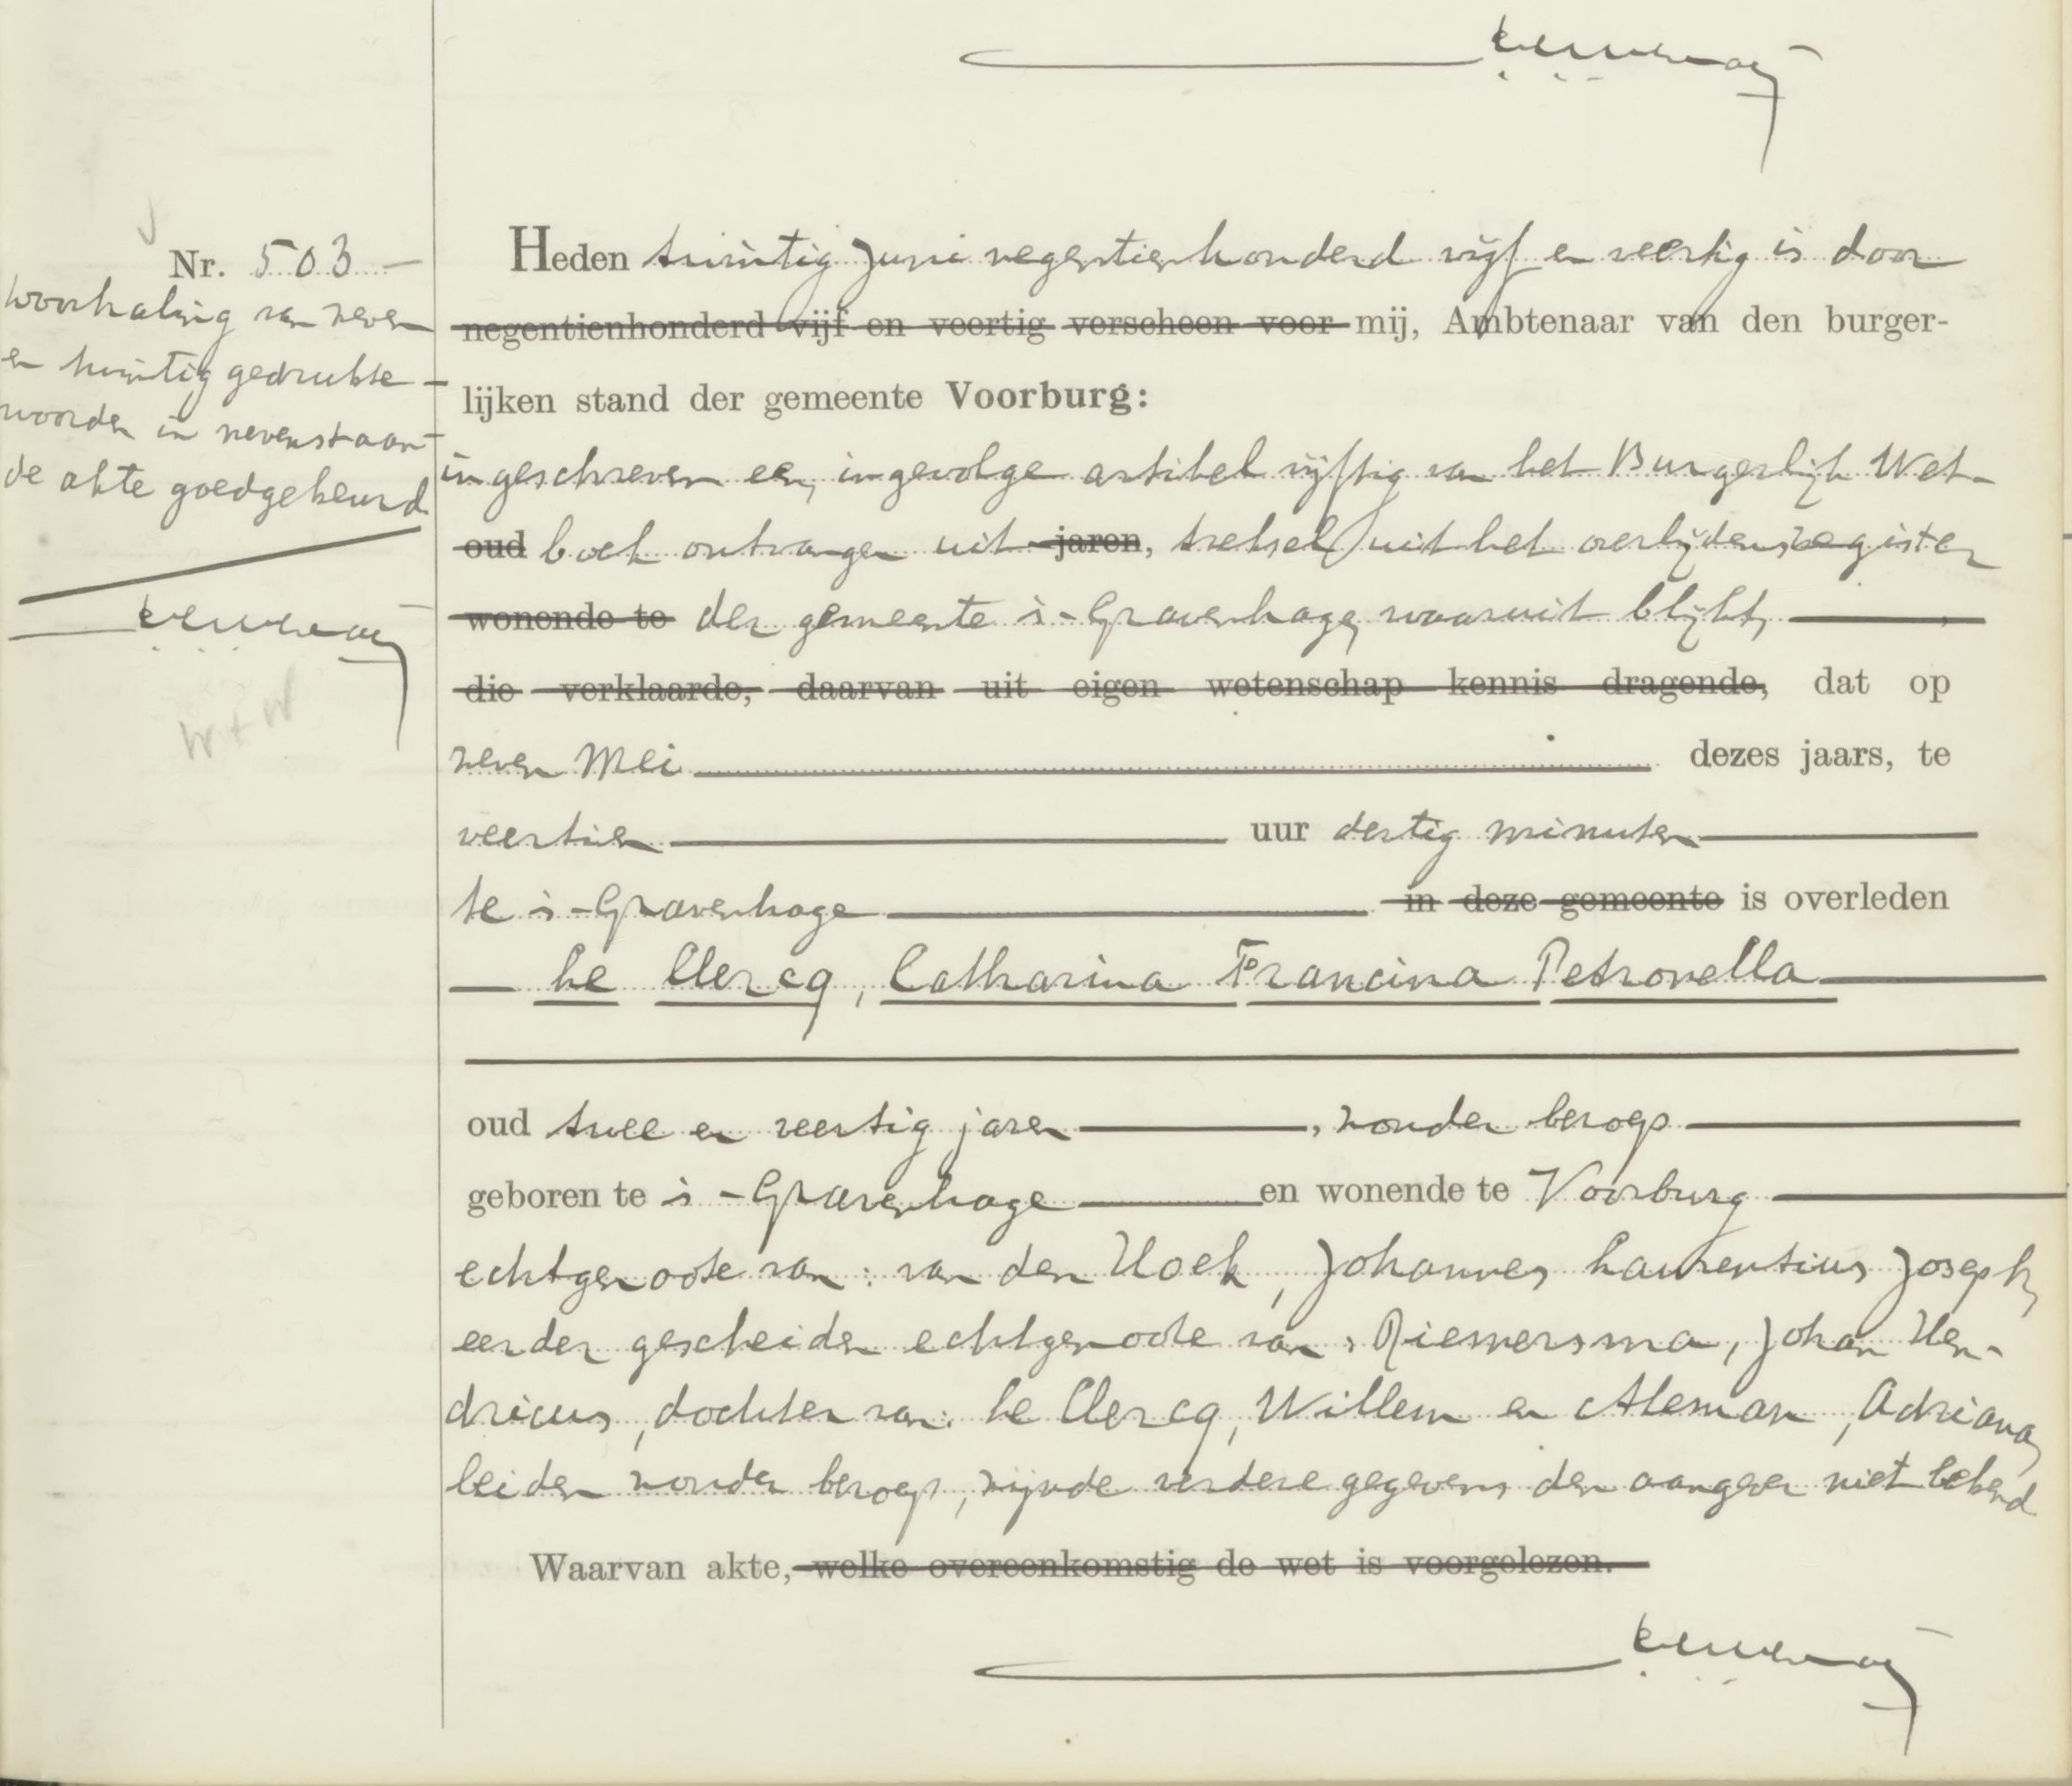 Nr. 503
Doorhaling van zeven
en twintig gedrukte
woorden in nevenstaan-
de akte goedgekeurd
Heden twintig Juni negentienhonderd vijf en veertig is door
negentienhonderd vijf en veertig verscheen voor mij, Ambtenaar van den burger-
lijken stand der gemeente Voorburg:
ingeschreven een, ingevolge artikel vijftig van het Burgerlijk Wet-
oud boek ontvangen uit jaren, treksel uit het overlijdensregister
wonende te der gemeente 's-Gravenhage, waaruit blijkt,
die verklaarde, daarvan uit eigen wetenschap kennis dragende, dat op
zeven Mei dezes jaars, te
veertien uur dertig minuten
te 's-Gravenhage in deze gemeente is overleden
le Clercq, Catharina Francina Petronella
oud twee en veertig jaren, zonder beroep
geboren te 's-Gravenhage en wonende te Voorburg
echtgenoote van: van den Hoek, Johannes Laurentius Joseph,
eerder gescheiden echtgenoote van: Riemersma, Johan Hen-
dricus, dochter van: le Clercq, Willem en Aleman, Adriana,
beiden zonder beroep, zijnde verdere gegevens den aangever niet bekend
Waarvan akte, welke overeenkomstig de wet is voorgelezen.